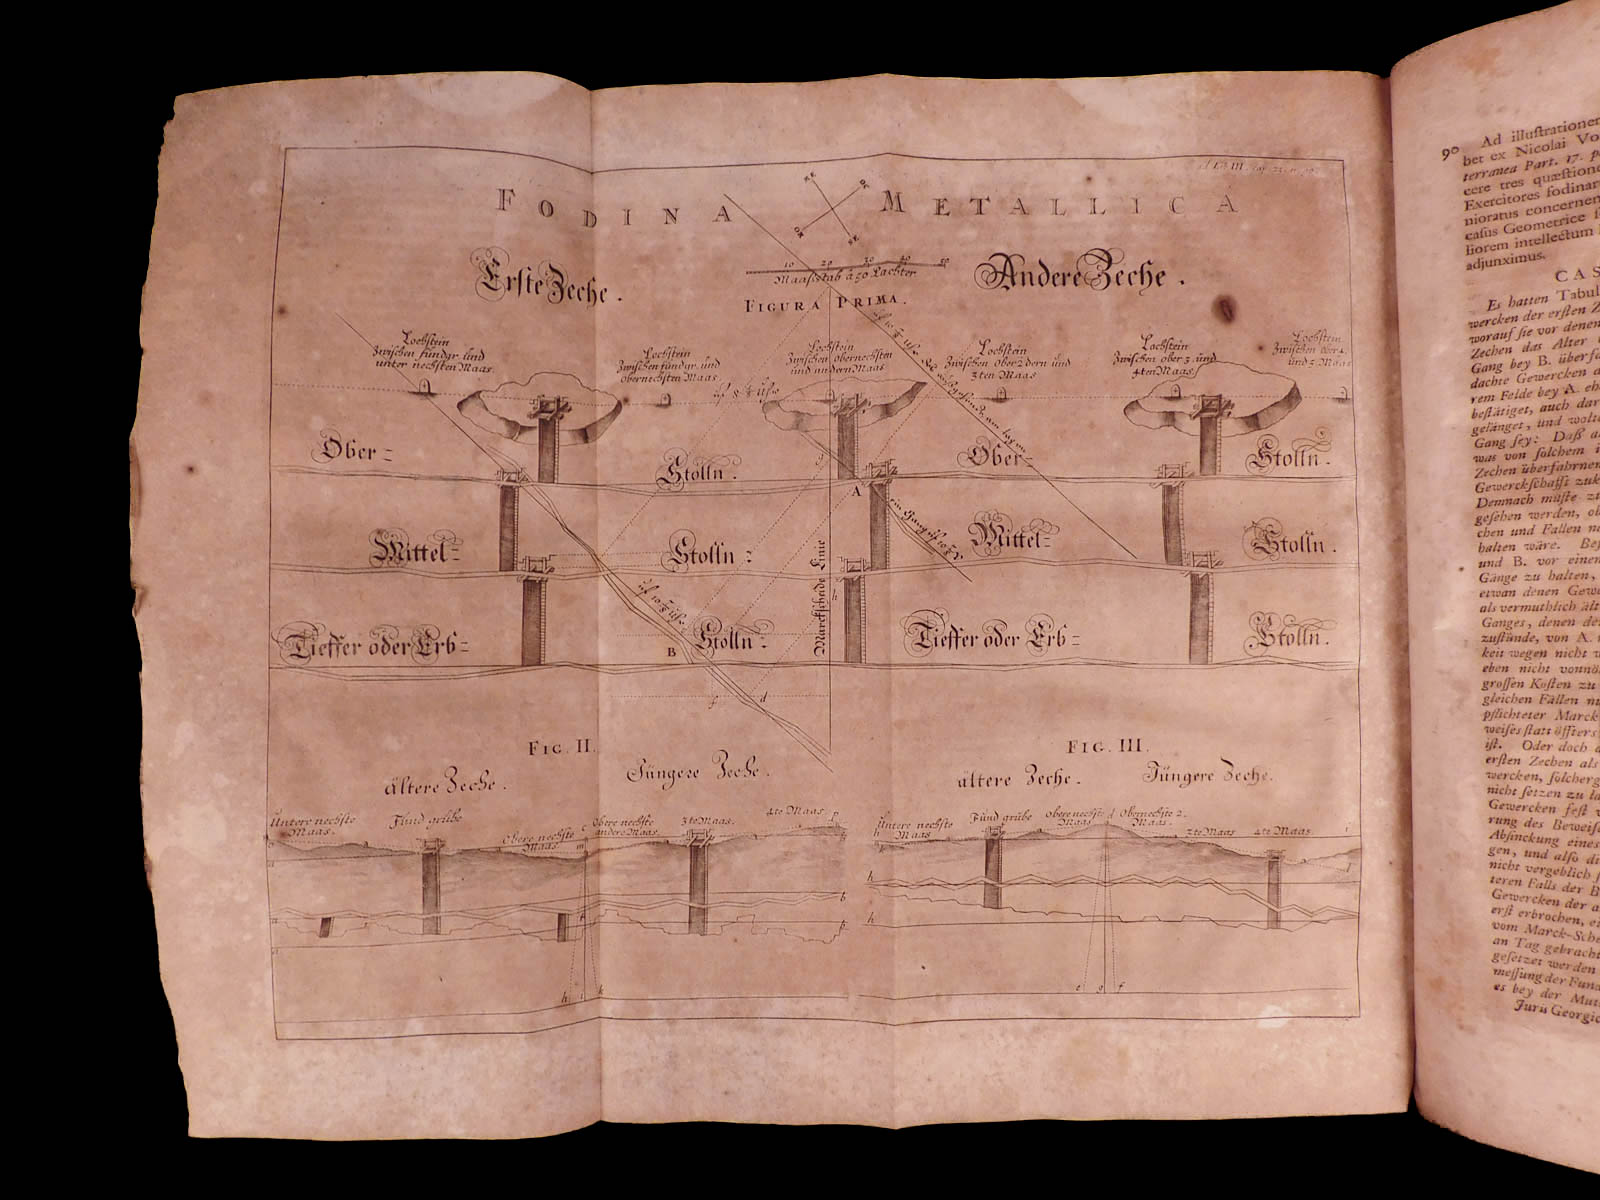 FODINA METALLICA
Erste Zeche.
Andere Zeche.
10 20 30 40 50
Maasstab à 50 Lachter
FIGURA PRIMA.
Lochstein
Zwischen fundgr. und
unter nechsten Maas.
Lochstein
Zwischen fundgr. und
obernechsten Maas
Lochstein
Zwischen obernechsten
und andern Maas
Lochstein
Zwischen Ober 2 dern und
3ten Maas
Lochstein
Zwischen ober 3. und
4ten Maas
Lochstein
Zwischen ober 4.
und 5 Maas
Ober-
Stolln.
Ober-
Stolln.
A
Mittel-
Stolln:
Mittel-
Stolln.
Marckscheide Linie
h
Tieffer oder Erb-
B
Stolln:
Tieffer oder Erb-
Stolln.
f d
FIG. II.
ältere Zeche.
Jüngere Zeche.
Untere nechste
Maas.
Fund grube
Obere nechste
Maas
Obere nechste
andere Maas
3te Maas.
4te Maas
h i k
FIG. III.
ältere Zeche.
Jüngere Zeche.
Untere nechste
Maas
Fund grube
Obere nechste
Maas
Obernechste 2.
Maas.
3te Maas
4te Maas
e g f
90
Ad illustrationem
bet ex Nicolai Vo
terranea Part. 17. p
cere tres quæstione
Exercitores fodinar
nioratus concernen
casus Geometrice
liorem intellectum
adjunximus.
CAS
Es hatten Tabul
wercken der ersten Z
worauf sie vor denen
Zechen das Alter
Gang bey B. überfa
dachte Gewercken
rem Felde bey A. eh
bestätiget, auch dar
gelänget, und wolt
Gang sey: Daß a
was von solchem
Zechen überfahrnen
Gewerckschafft zuk
Demnach müste z
gesehen werden, ob
chen und Fallen n
halten wäre. Be
und B. vor einen
Gänge zu halten,
etwan denen Gew
als vermuthlich ält
Ganges, denen de
zustünde, von A.
keit wegen nicht
eben nicht vonnö
grossen Kosten zu
gleichen Fällen n
pflichteter Marck
weises statt öffters
ist. Oder doch
ersten Zechen als
wercken, solcherg
nicht setzen zu la
Gewercken fest
rung des Beweis
Absinckung eines
gen, und also di
nicht vergeblich
teren Falls der B
Gewercken der a
erst erbrochen, e
vom Marck-Sche
an Tag gebracht
gesetzet werden
messung der Fund
es bey der Mut
Juris Georgic